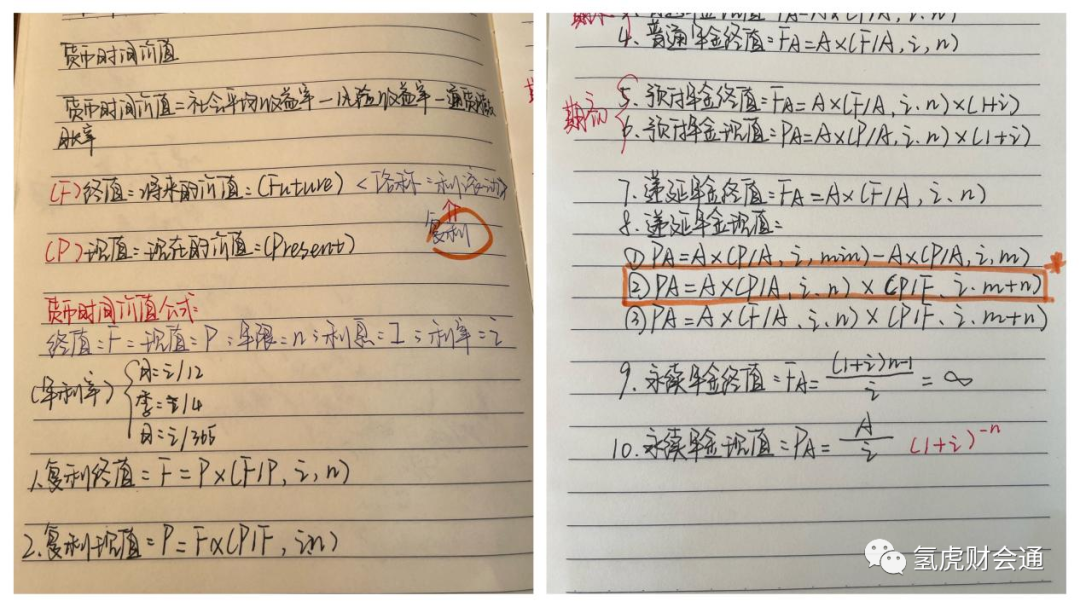 货币时间价值
货币时间价值=社会平均收益率-风险收益率-通货膨胀
(F)终值=将来的价值=(Future)
复利
(P)现值=现在的价值=(Present)
货币时间价值公式:
终值=F=现值=P;年限=n;利息=I;利率=i
(年利率)
月=i/12
季=i/4
日=i/365
1.复利终值=F=P×(F/P,i,n)
2.复利现值=P=F×(P/F,in)
4.普通年金终值=FA=A×(F/A,i,n)
5.预付年金终值=FA=A×(F/A,i.n)×(1+i)
期初
6.预付年金现值=PA=A×(P/A,i.n)×(1+i)
7.递延年金终值=FA=A×(F/A,i.n)
8.递延年金现值=
①PA=A×(P/A,i,m+n)-A×(P/A,i,m)
②PA=A×(P/A,i.n)×(P/F.i.m+n)
③PA=A×(F/A.i.n)×(P/F.i.m+n)
9.永续年金终值=FA=(1+i)n-1/i=∞
10.永续年金现值=PA=A/i (1+i)⁻ⁿ
氢虎财会通